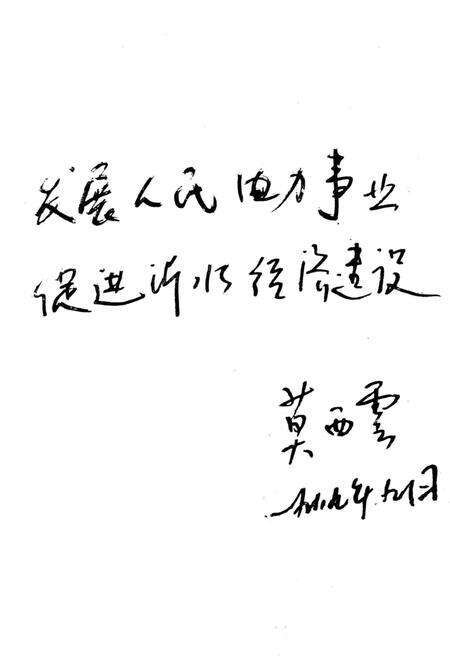 发展人民电力事业
促进沂水经济建设
莫西雲
年九月